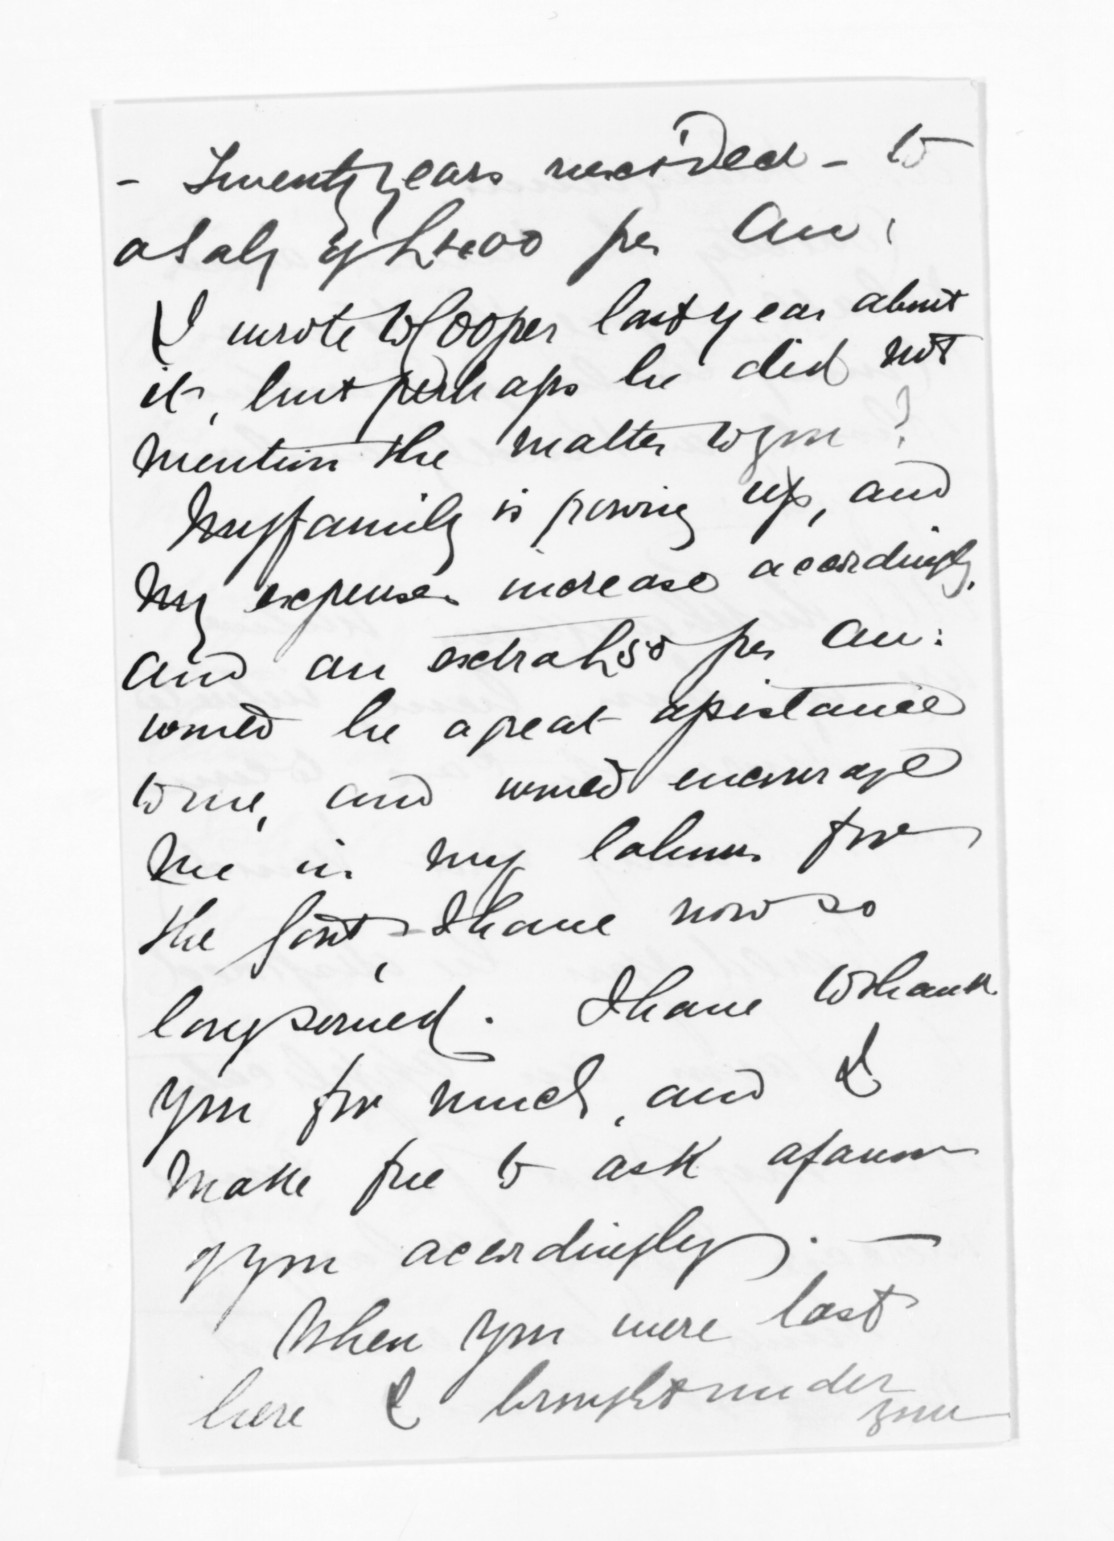 - Twenty years next Decr - to
a saly of £400 per Ann:
I wrote to Cooper last year about
it, but perhaps he did not
mention the matter to you?
My family is growing up, and
my expenses increase accordingly,
and an extra £50 per Ann:
would be a great assistance
to me, and would encourage
me in my labours for
the Govt, I have now so
long served. I have to thank
you for much, and I
make free to ask a favour
of you accordingly. —
When you were last
here I brought under
your